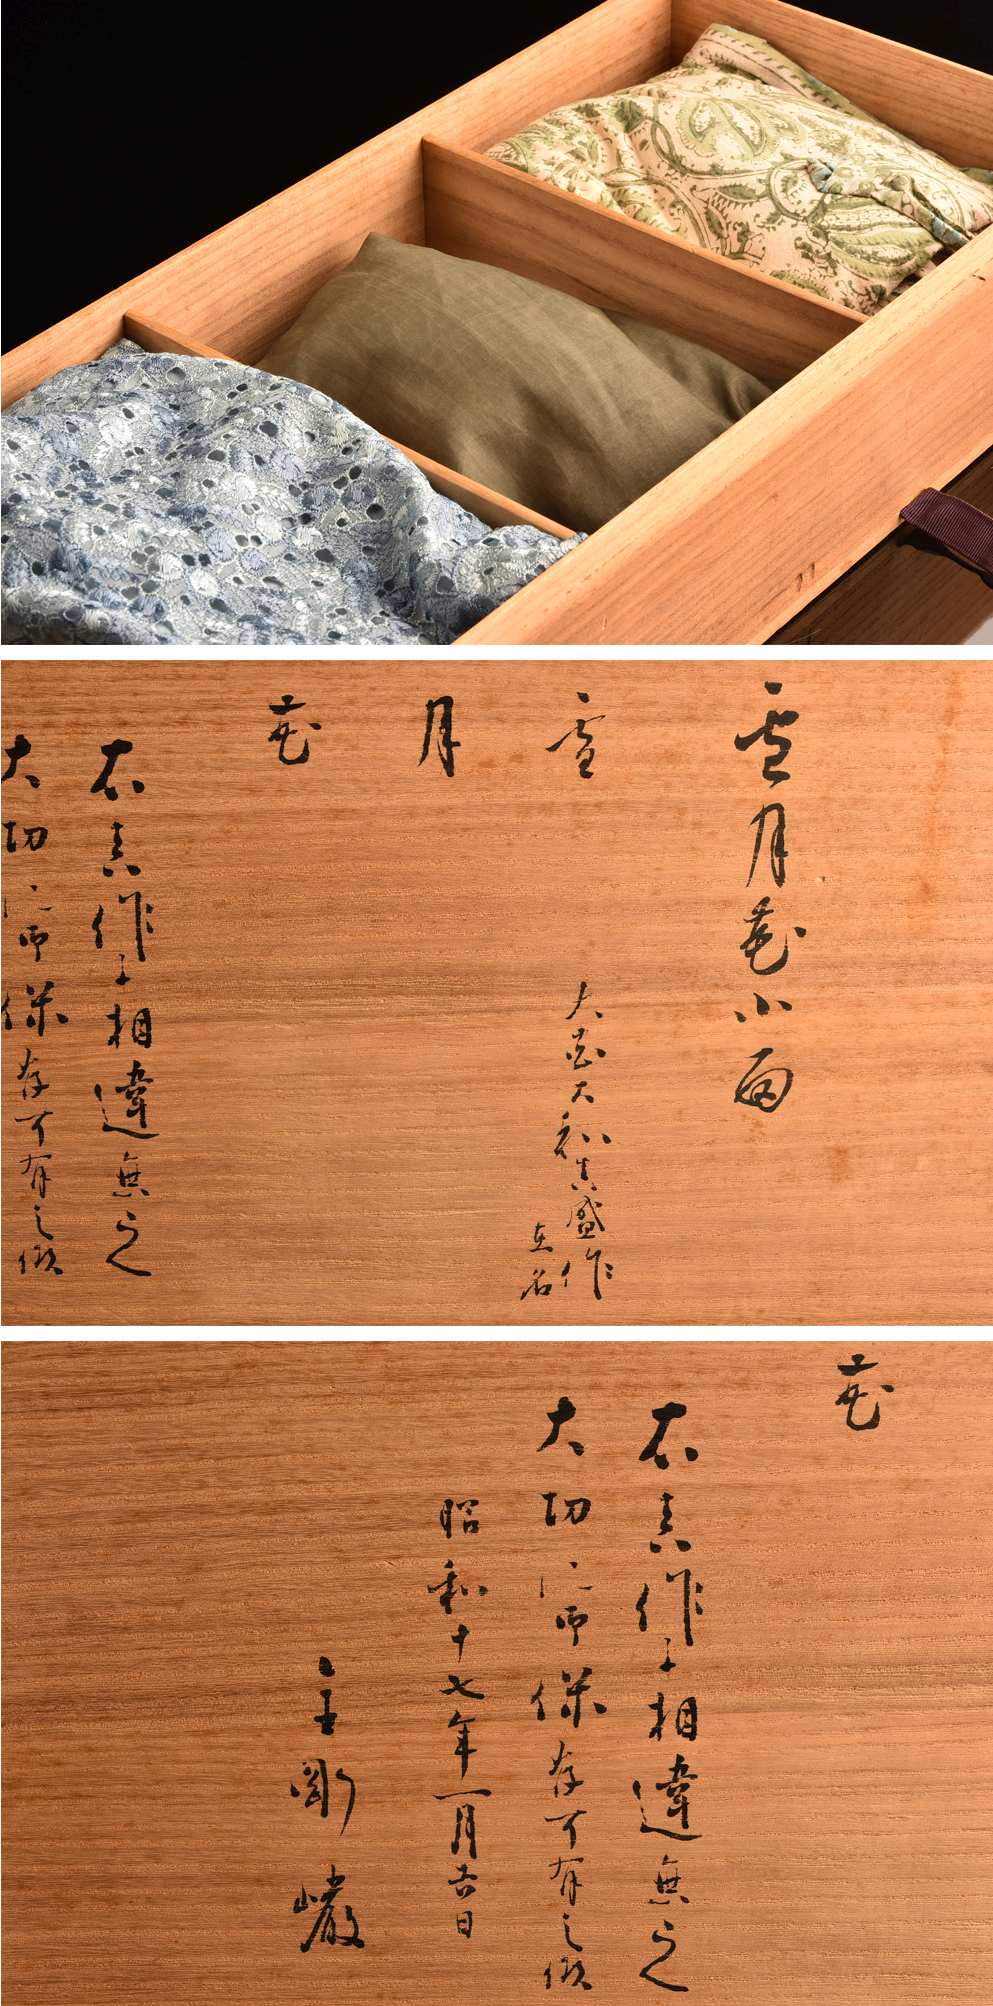 雪月花小面
雪
大宮大和真盛作
在名
月
花
右真作ニ相違無之
大切ニ御保存可有之候
花
右真作ニ相違無之
大切ニ御保存可有之候
昭和十七年一月吉日
金剛巌